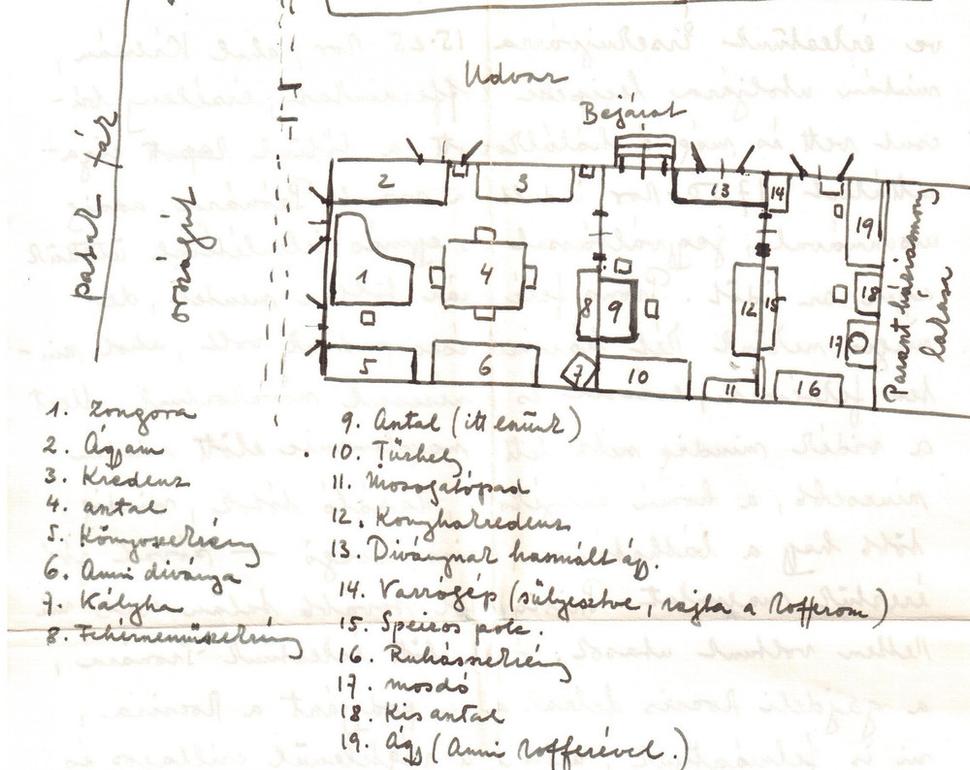 Udvar
Bejárat
országút
1. Zongora
2. Ágyam
3. Kredenz
4. asztal
5. Könyvszekrény
6. Anni díványa
7. Kályha
8. Fehérneműszekrény
9. Asztal (itt eszünk)
10. Tűzhely
11. Mosogatópad
12. Konyhakredenz
13. Díványnak használt ágy.
14. Varrógép (sülyesztve, rajta a kofferom)
15. Speizos polc.
16. Ruhásszekrény
17. mosdó
18. Kis asztal
19. Ágy (Anni kofferével.)
2
3
13
14
19
1
4
8
9
12
15
18
17
5
6
7
10
11
16